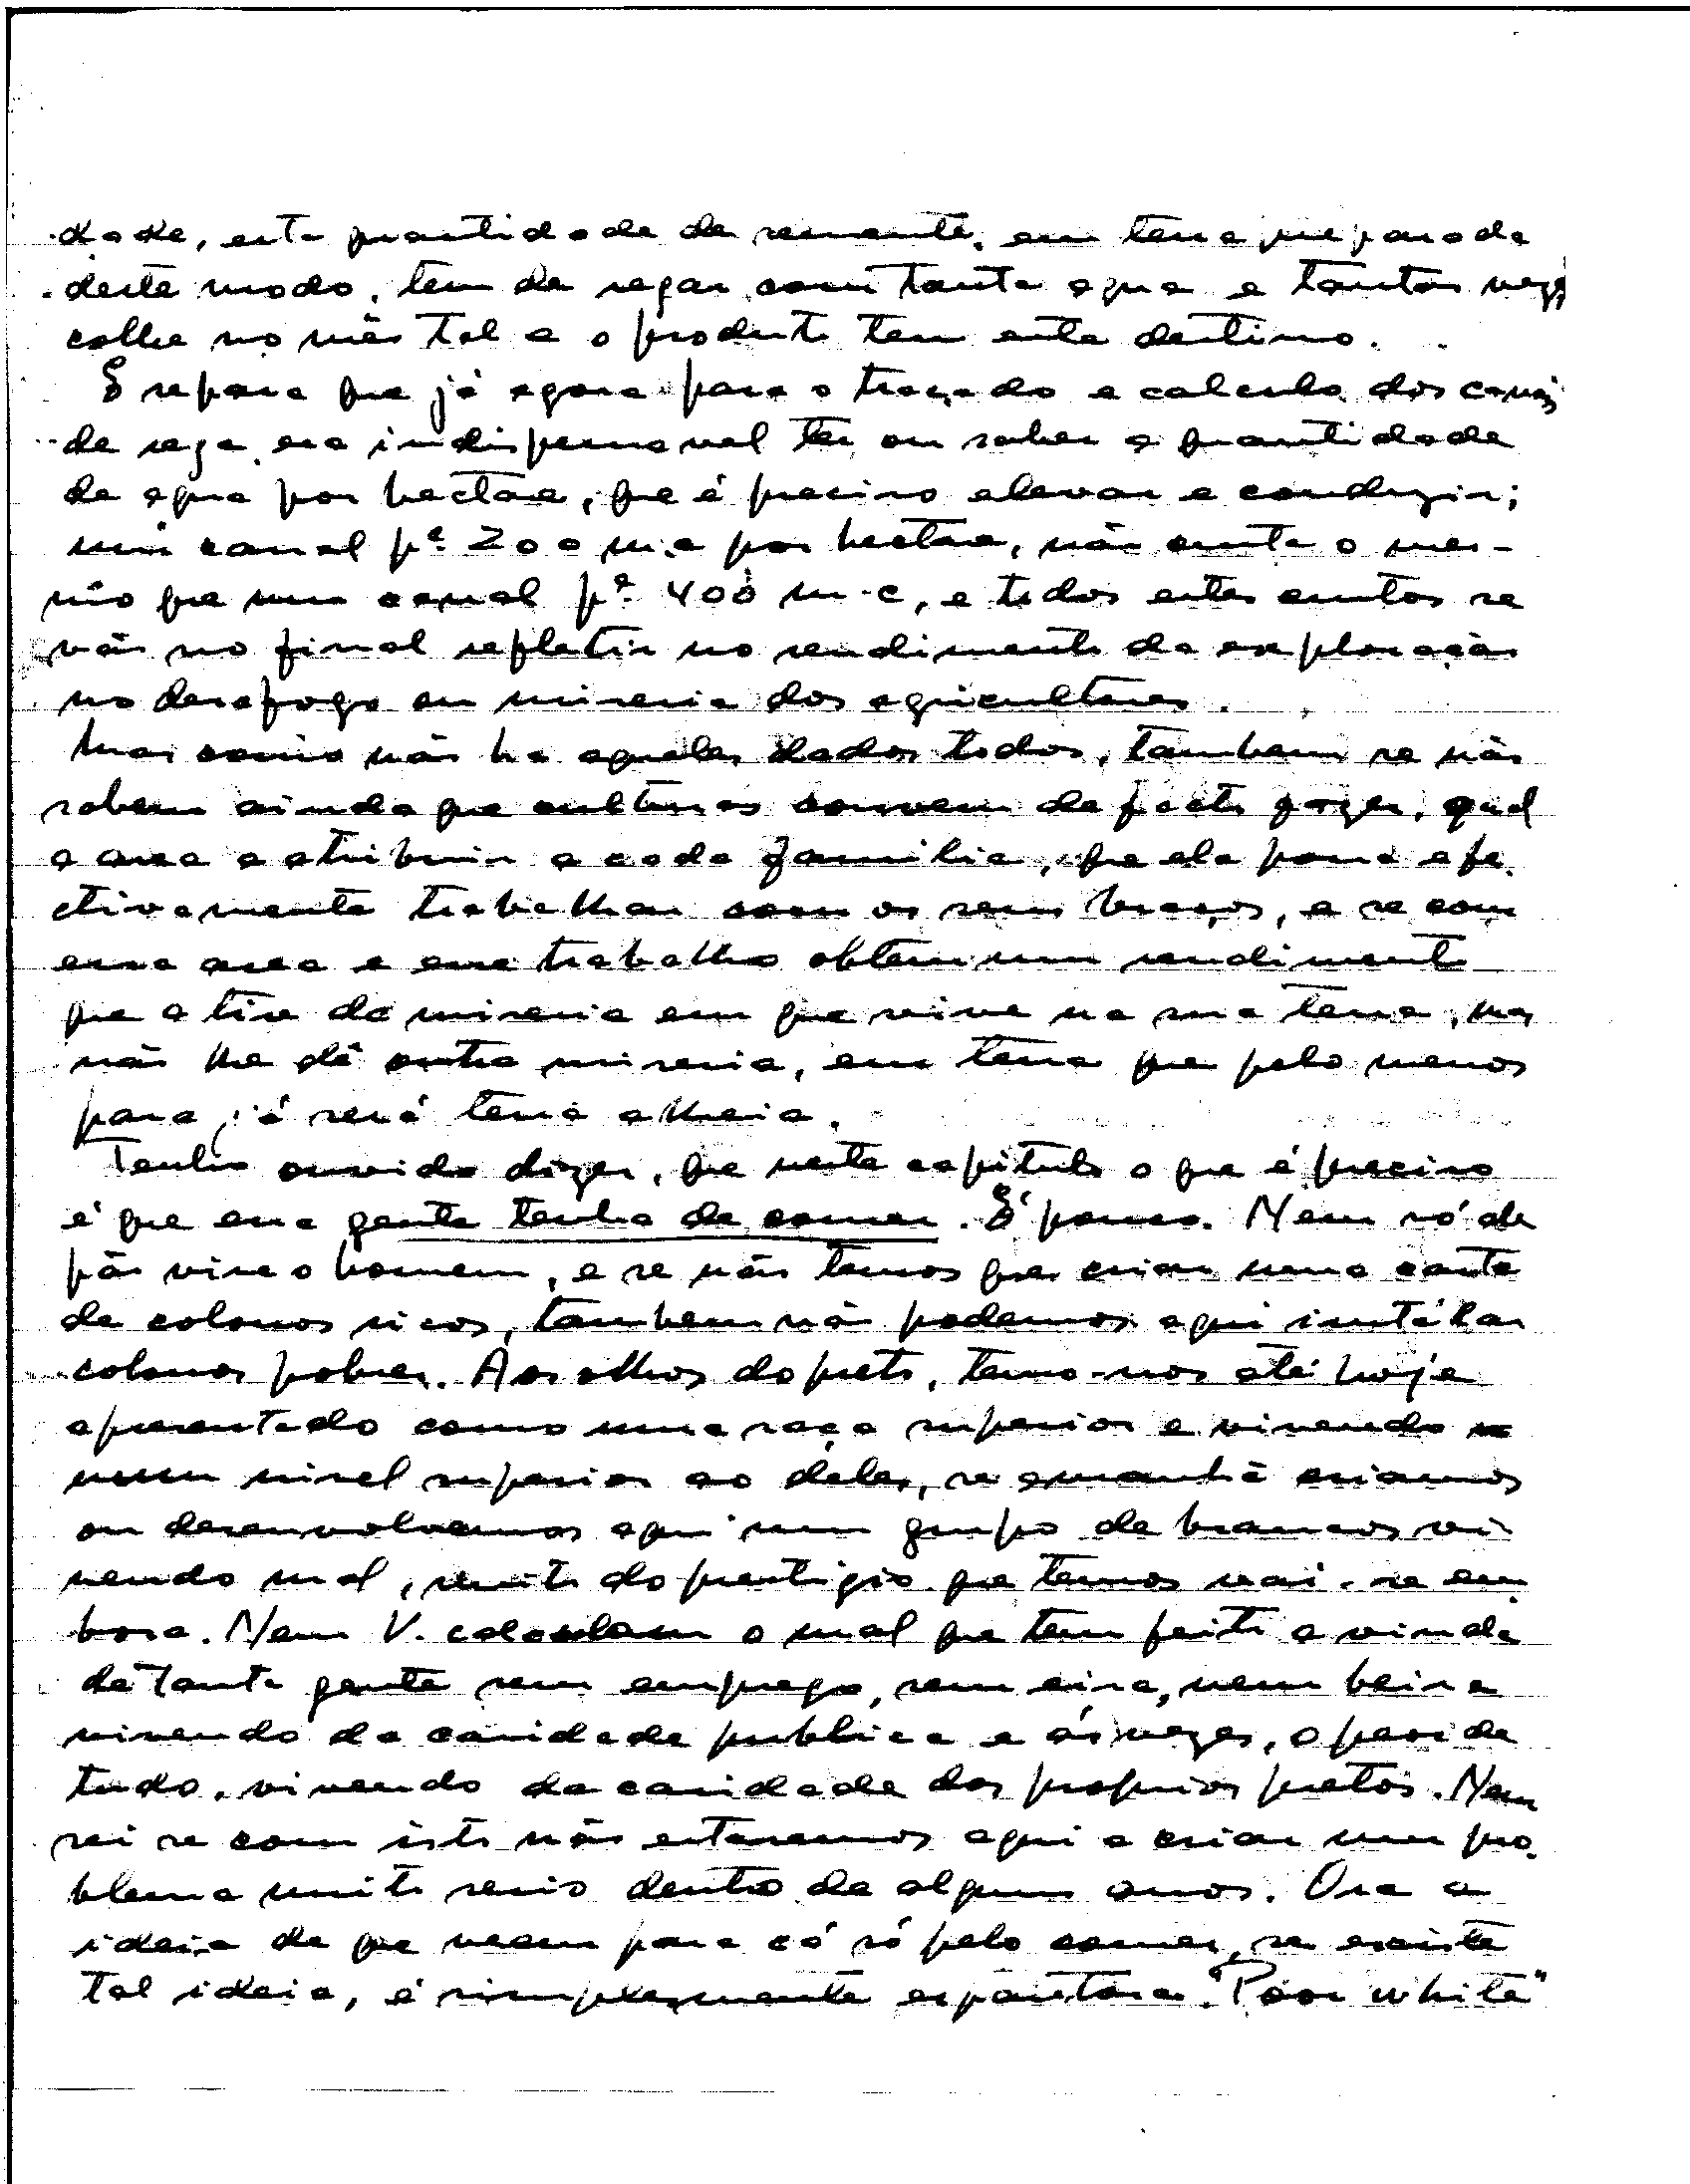 dade, esta quantidade de semente, em terra preparada
deste modo, tem de regar com tanta agua e tantas vezes
colhe no mês tal e o produto tem este destino.
E repare que já agora para o traçado e calculo dos canais
de rega era indispensavel ter ou saber a quantidade
de agua por hectare, que é preciso elevar e conduzir;
um canal pª 200 m.c por hectare, não custa o mes-
mo que um canal pª 400 m.c, e todos estes custos se
vão no final refletir no rendimento da exploração
no desafogo ou miseria dos agricultores.
Mas como não ha aqueles dados todos, tambem se não
sabem ainda que culturas convem de facto fazer, qual
a area a atribuir a cada familia, que ela possa efe
ctivamente trabalhar com os seus braços, e se com
essa area e esse trabalho obtem um rendimento
que a tire da miseria em que vive na sua terra, mas
não lhe dê outra miseria, em terra que pelo menos
para já será terra alheia.
Tenho ouvido dizer, que neste capitulo o que é preciso
é que essa gente tenha de comer. É pouco. Nem só de
pão vive o homem, e se não temos que criar uma casta
de colonos ricos, tambem não podemos aqui instálar
colonos pobres. Aos olhos do preto, temo-nos até hoje
apresentado como uma raça superior e vivendo
num nivel superior ao dêles, se amanhã criamos
ou desenvolvemos aqui um grupo de brancos vi
vendo mal, muito do prestigio que temos vai-se em
bora. Nem V. calculam o mal que tem feito a vinda
de tanta gente sem emprego, sem eira, nem beira
vivendo da caridade publica e ás vezes, o peor de
tudo, vivendo da caridade dos proprios pretos. Nem
sei se com isto não estaremos aqui a criar um pro
blema muito serio dentro de alguns anos. Ora a
ideia de que veem para cá só pelo comer, se existe
tal ideia, é simplesmente espantosa. "Poor white"